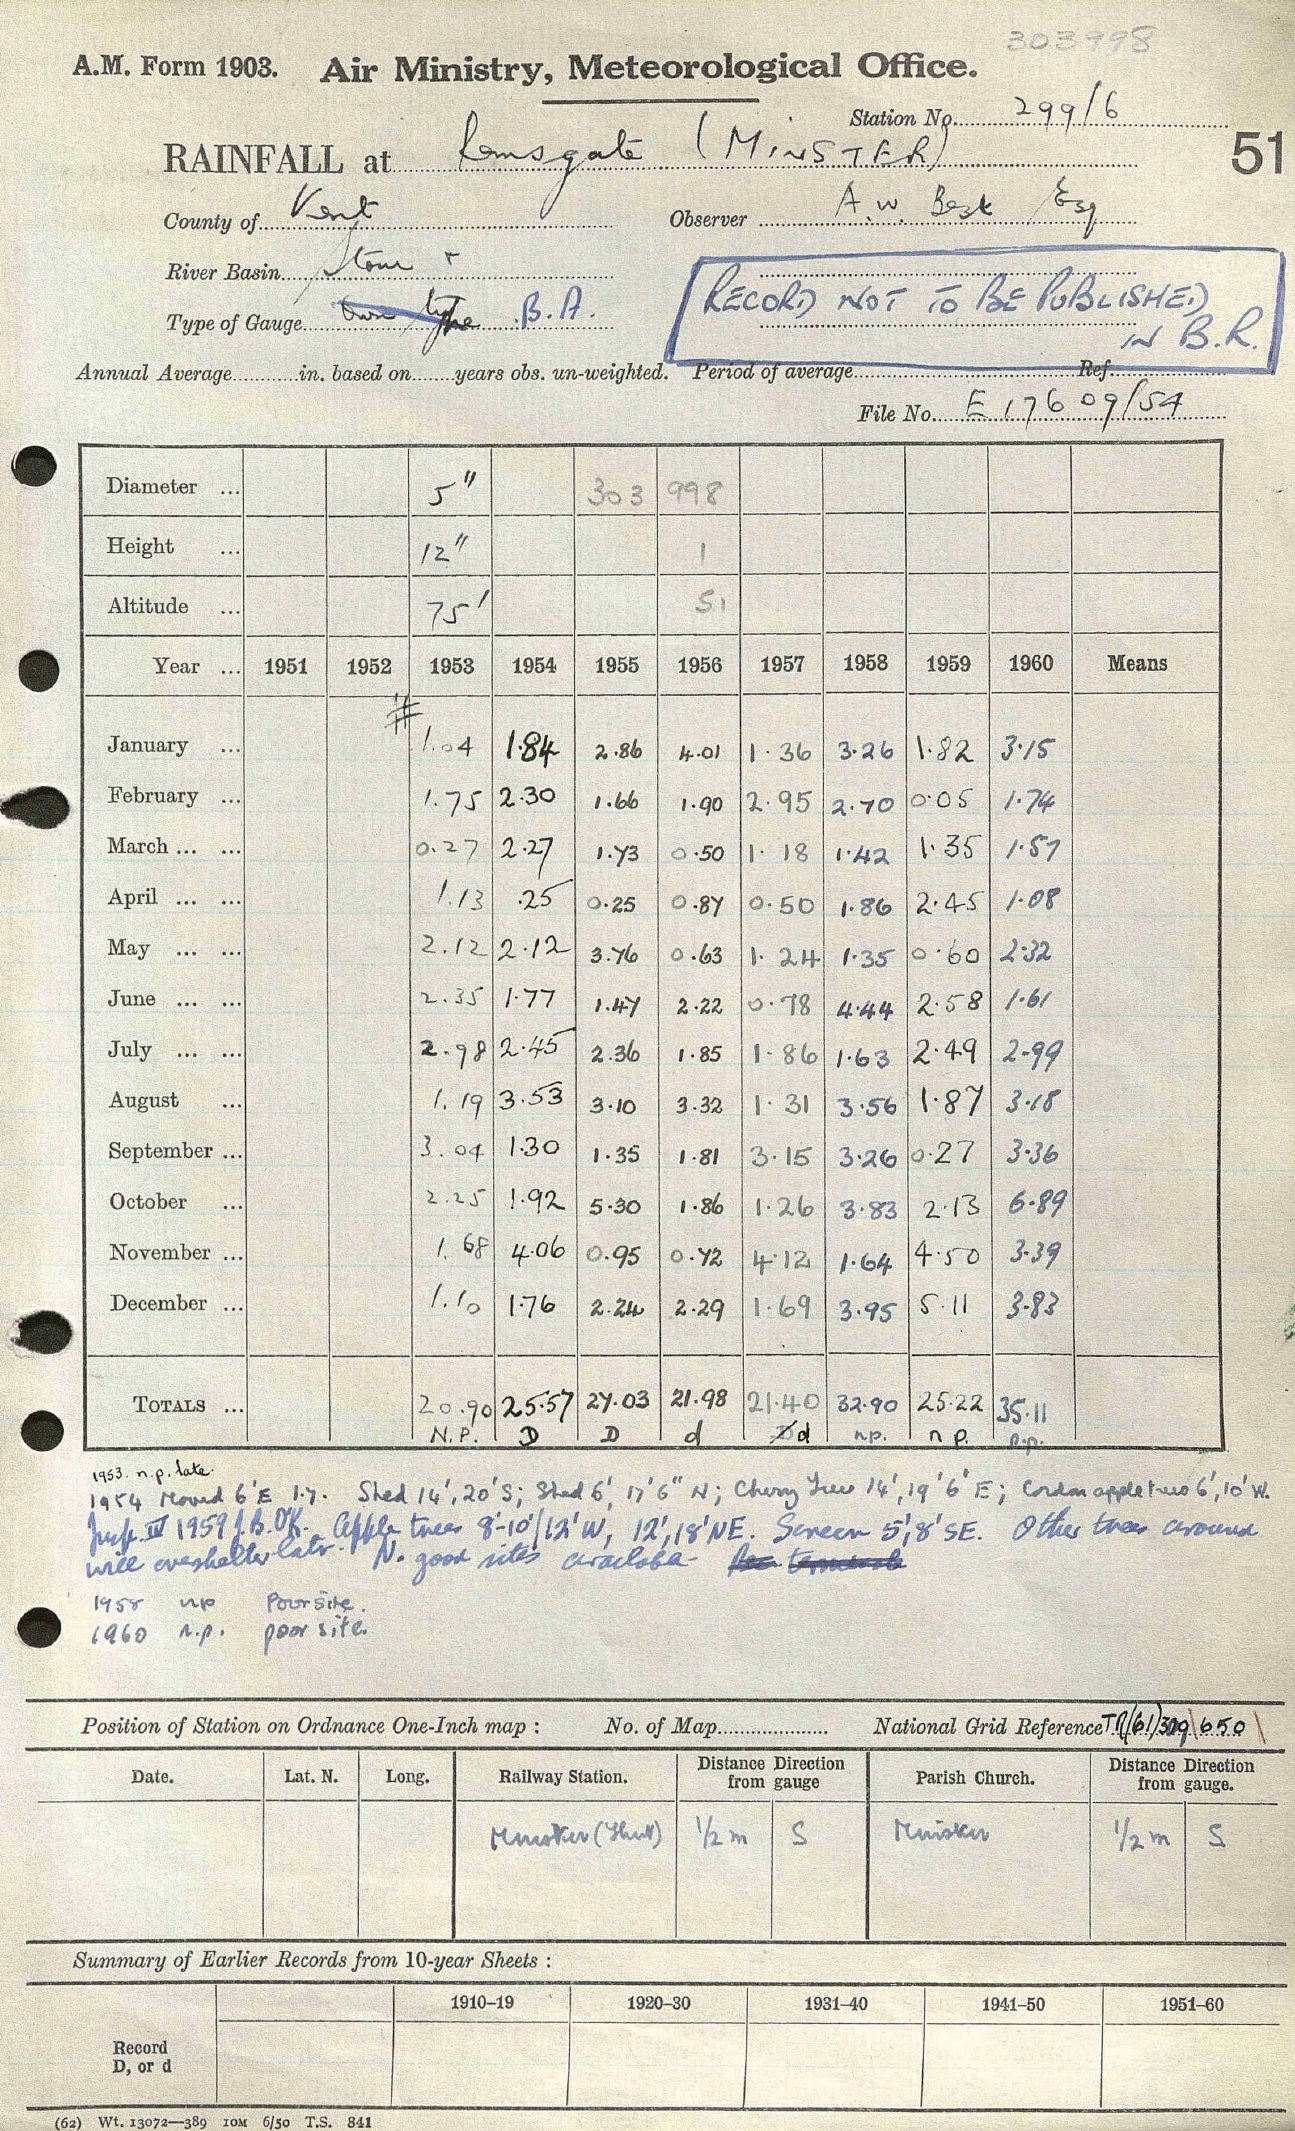 303998
A.M. Form 1903. Air Ministry, Meteorological Office.
Station No. 299/6
RAINFALL at Ramsgate (MINSTER)
51
County of Kent Observer A.W. Best Esq
River Basin Stour +
RECORD NOT TO BE PUBLISHED IN B.R.
Type of Gauge Own type B.A.
Annual Average............in. based on.......years obs. un-weighted. Period of average............ Ref............
File No. E 17609/54
Diameter ... 5" 303 998
Height ... 12" 1
Altitude ... 75' 51
Year ... 1951 1952 1953 1954 1955 1956 1957 1958 1959 1960 Means
#
January ... 1.04 1.84 2.86 4.01 1.36 3.26 1.82 3.15
February ... 1.75 2.30 1.66 1.90 2.95 2.70 0.05 1.74
March ... ... 0.27 2.27 1.73 0.50 1.18 1.42 1.35 1.57
April ... ... 1.13 .25 0.25 0.87 0.50 1.86 2.45 1.08
May ... ... 2.12 2.12 3.76 0.63 1.24 1.35 0.60 2.32
June ... ... 2.35 1.77 1.47 2.22 0.78 4.44 2.58 1.61
July ... ... 2.98 2.45 2.36 1.85 1.86 1.63 2.49 2.99
August ... 1.19 3.53 3.10 3.32 1.31 3.56 1.87 3.18
September ... 3.04 1.30 1.35 1.81 3.15 3.26 0.27 3.36
October ... 2.25 1.92 5.30 1.86 1.26 3.83 2.13 6.89
November ... 1.68 4.06 0.95 0.72 4.12 1.64 4.50 3.39
December ... 1.10 1.76 2.24 2.29 1.69 3.95 5.11 3.83
TOTALS ... 20.90 25.57 27.03 21.98 21.40 32.90 25.22 35.11
N.P. D D d d n.p. n.p. n.p.
1953. n.p. late.
1954 Moved 6'E 1.7. Shed 14', 20'S; Shed 6', 17'6" N; Cherry Tree 14', 19'6' E; Cordon apple trees 6', 10'W.
Insp. IV 1959 J.B. OK. Apple trees 8'-10'/12'W, 12', 18'NE. Screen 5', 8'SE. Other trees around
will overshelter later. No good sites available
1958 np Poor site.
1960 n.p. poor site.
Position of Station on Ordnance One-Inch map : No. of Map.................... National Grid Reference TR(61) 309 650
Date. Lat. N. Long. Railway Station. Distance Direction from gauge Parish Church. Distance Direction from gauge.
Minster (Thanet) 1/2 m S Minster 1/2 m S
Summary of Earlier Records from 10-year Sheets :
1910–19 1920–30 1931–40 1941–50 1951–60
Record
D, or d
(62) Wt. 13072—389 10M 6/50 T.S. 841